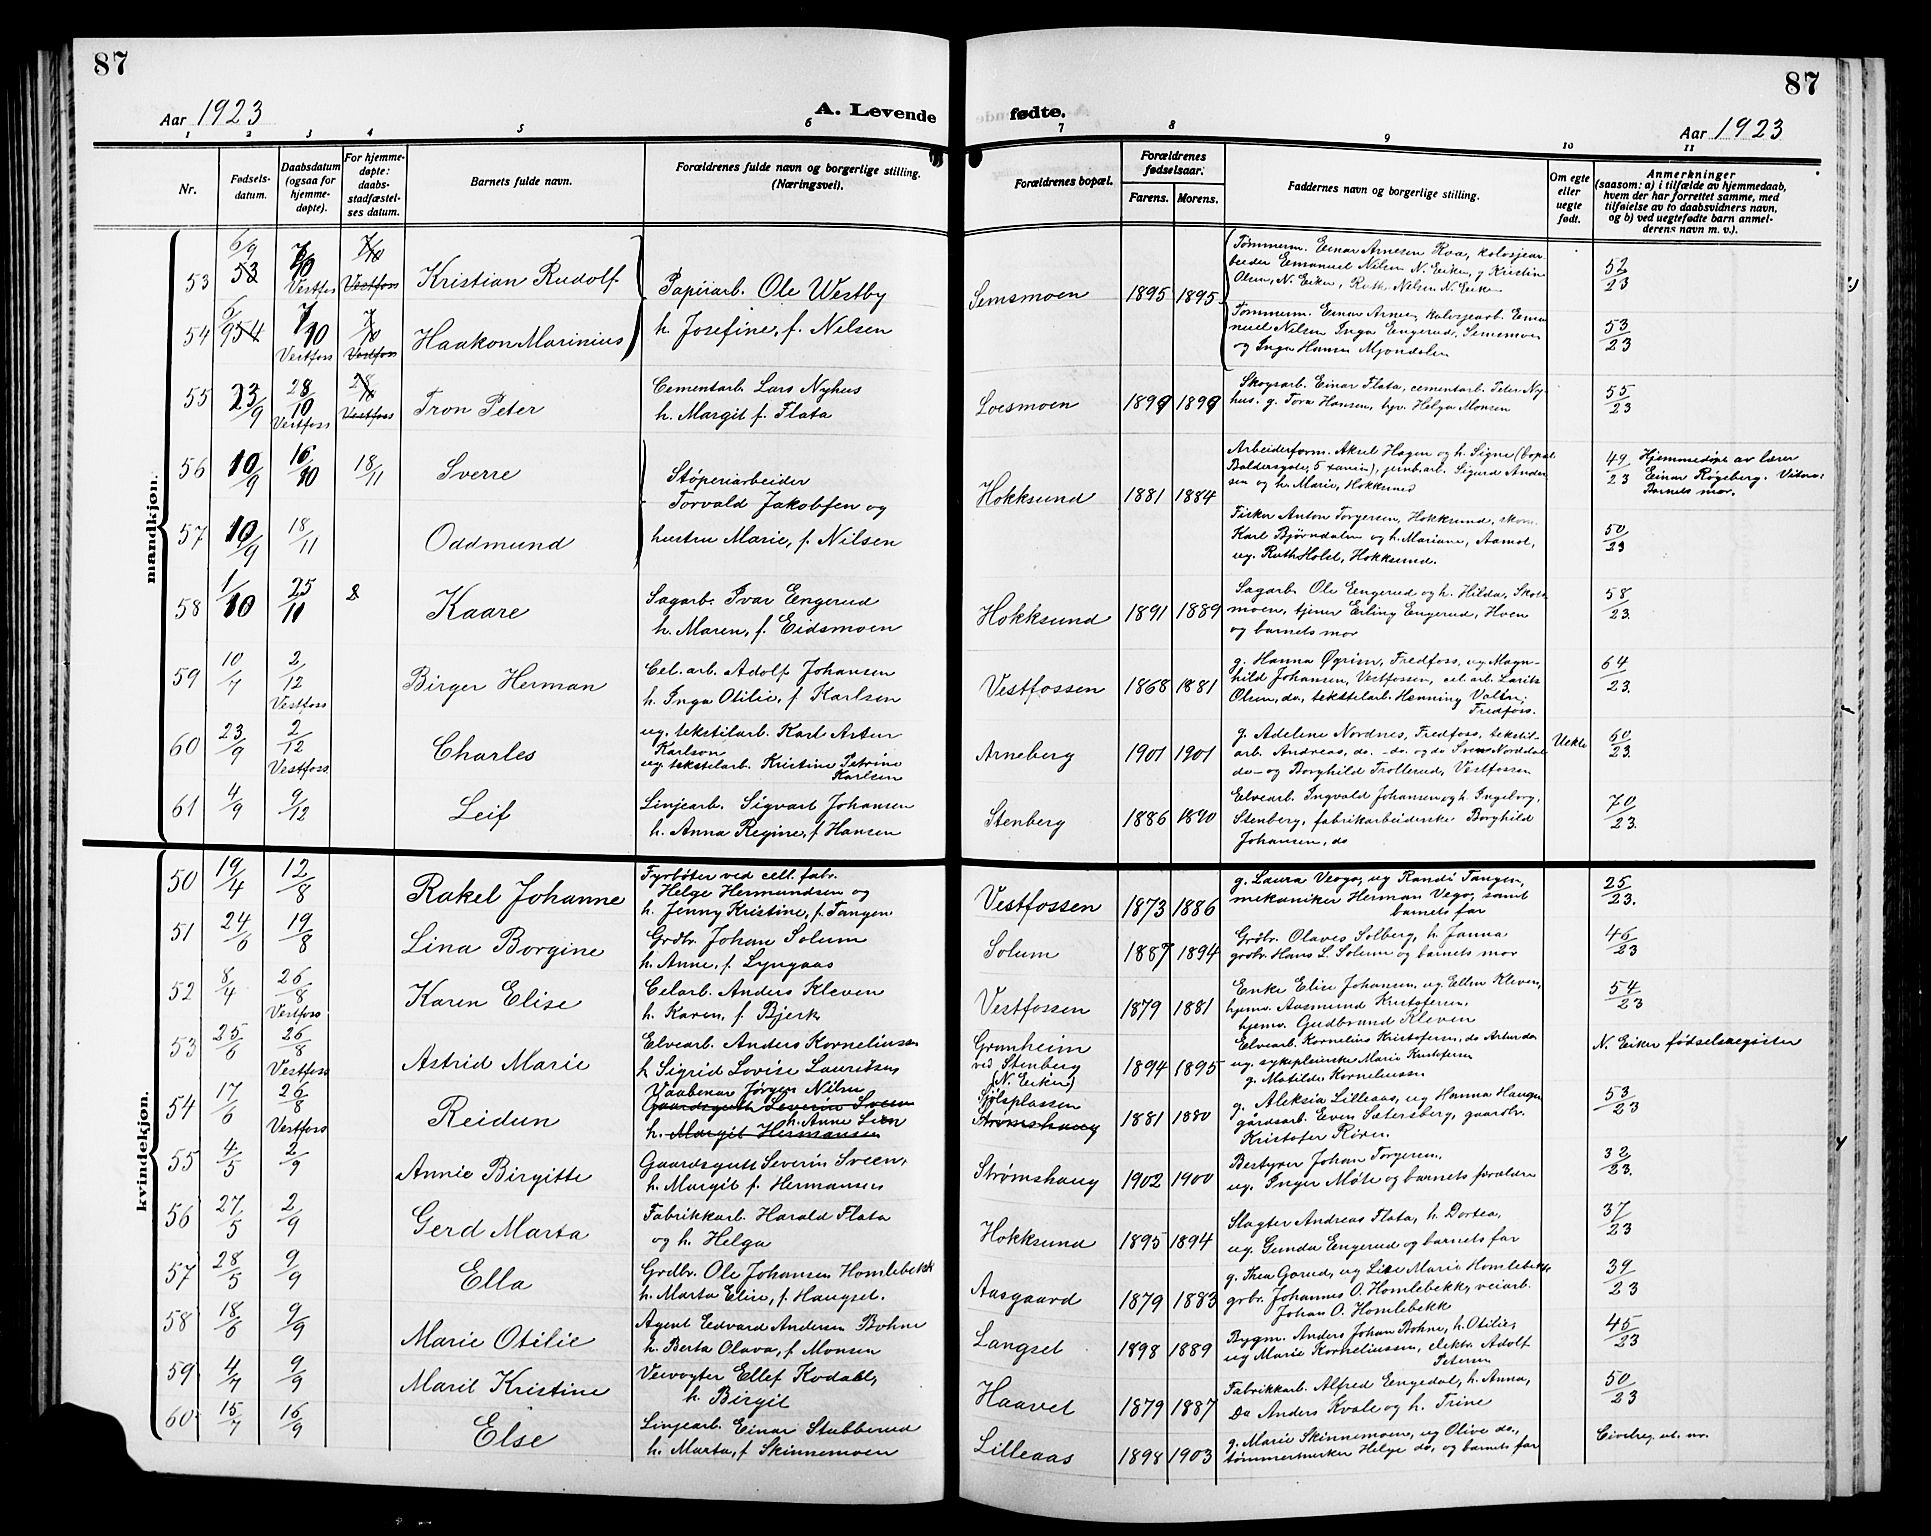 87
Aar 1923
A. Levende
1 2 3 4 5 6
Nr.
Fødsels-
datum.
Daabsdatum
(ogsaa for
hjemme-
døpte).
For hjemme-
døpte:
daabs-
stadfæstel-
ses datum.
Barnets fulde navn.
Forældrenes fulde navn og borgerlige stilling.
(Næringsvei).
mandkjøn.
53 6/9 53 7/10 Vestfos 7/10 Vestfoss Kristian Rudolf
Papirarb. Ole Westby
h. Josefine, f. Nelsen
54 6/9 54 7/10 Vestfoss 7/10 Vestfoss Haakon Marinius
55 23/9 28/10 Vestfoss 28/10 Vestfoss Tron Peter
Cementarb. Lars Nyhus
h. Margit f. Flata
56 10/9 16/10 18/11 Sverre
Støperiarbeider
Torvald Jakobsen og
hustru Marie, f. Nilsen
57 10/9 18/11 Oddmund
58 1/10 25/11 Kaare
Sagarb. Ivar Engerud
h. Maren, f. Eidsmoen
59 10/7 2/12 Vestfoss Birger Herman
Cel. arb. Adolf Johansen
h. Inga Otilie, f Karlsen
60 23/9 2/12 Vestfoss Charles
ug. tekstilarb. Karl Artur
Karlson
ug. tekstilarb. Kristine Petrine
Karlsen
61 4/9 9/12 Leif
Linjearb. Sigvart Johansen
h. Anna Regine, f Hansen
kvindekjøn.
50 19/4 12/8 Rakel Johanne
Fyrbøter ved cell. fabr.
Helge Hermundsen og
h. Jenny Kristine, f. Tangen
51 24/6 19/8 Lina Borgine
Grdbr. Johan Solum
h. Anne, f. Lyngaas
52 8/4 26/8 Vestfoss Karen Elise
Celarb. Anders Kleven
h. Karen, f. Bjerk
53 25/6 26/8 Vestfoss Astrid Marie
Elvearb. Anders Korneliussen
h Sigrid Lovise Lauritsen
54 17/6 26/8 Vestfoss Reidun
Vaabenar Jørgen Nilsen
Gaardsgutt Severin Sveen
h. Anne Lien
h. Margit Hermansen
55 4/5 2/9 Annie Birgitte
Gaardsgutt Severin Sveen,
h. Margit f. Hermansen
56 27/5 2/9 Gerd Marta
Fabrikkarb. Harald Flata
og h. Helga
57 28/5 9/9 Ella
Grdbr. Ole Johansen Homlebekk
h. Marta Elise, f. Haugset.
58 18/6 9/9 Marie Otilie
Agent Edvard Andersen Bohne
h. Berta Olava, f Monsen
59 4/7 9/9 Marit Kristine
Veivogter Ellef Kodahl,
h. Birgit
60 15/7 16/9 Else
Linjearb. Einar Stubberud
h. Marta, f Skinnemoen
87
fødte.
Aar 1923
7 8 9 10 11
Forældrenes bopæl.
Forældrenes
fødselsaar:
Farens. Morens.
Faddernes navn og borgerlige stilling.
Om egte
eller
uegte
født.
Anmerkninger
(saasom: a) i tilfælde av hjemmedaab,
hvem der har forrettet samme, med
tilføielse av to daabsvidners navn,
og b) ved uegtefødte barn anmel-
derens navn m. v.).
Semsmoen 1895 1895
Tømmerm. Einar Arnesen Roa, kolosjear
beider Emanuel Nilsen N. Eiker, g Kristine
Olsen, N. Eiker, Ruth Nilsen N. Eiker
52/23
Tømmerm. Einar Arnes, kolosjearb. Ema
nuel Nilsen Inga Engerud, Semsmoen
og Inga Hansen Mjøndalen
53/23
Loesmoen 1899 1899
Skogsarb. Einar Flata, cementarb. Peter Ny-
hus. g. Tora Hansen, Helga Monsen
55/23
Hokksund 1881 1884
Arbeiderform. Aksel Hagen og h. Signe (bopæl
jernbarb. Sigurd Ander
sen og h. Marie, Hokksund
49/23
Hjemmedøpt av lærer
Einar Røgeberg.
Barnets mor.
Fisker Anton Torgersen, Hokksund, skom.
Karl Bjørndalen og h. Mariane, Aamot,
ug. Ruth Holst, Hokksund.
50/23
Hokksund 1891 1889
Sagarb. Ole Engerud og h. Hilda, Skots
moen, tjener Erling Engerud, Hoen
og barnets mor
58/23.
Vestfossen 1868 1881
g. Hanna Øgrim, Fredfoss, ug Magn-
hild Johansen, Vestfossen, cel. arb. Laritz
Olsen, do, tekstilarb. Henning
Fredfoss.
64/23.
Arneberg 1901 1901
g. Adeline Nordnes, Fredfoss, tekstil-
arb. Andreas, do. - do. og do Sven Norddal
do - og Borghild Trollerud, Vestfossen
Uekte
60/23.
Stenberg 1886 1890
Elvearb. Ingvald Johansen og h. Ingeborg,
Stenberg, fabrikarbeiderske Borghild
Johansen, do
70/23.
Vestfossen 1873 1886
g. Laura Vego, ug Randi Tangen,
mekaniker Herman Vego, samt
barnets far
25/23.
Solum 1887 1894
Grdbr. Olaves Solberg, h. Janna
grdbr. Hans L. Solum og barnets mor
46/23
Vestfossen 1879 1881
Enke Elise Johansen, ug Ellen Kleven,
hjemv. Aasmund Kristofersen,
hjemv. Gudbrand Kleven
54/23
Granheim
ved Stenberg
(N. Eiker) 1894 1895
Elvearb. Kornelius Kristofersen, do Artur do
ug. sykepleierske Marie Kristofersen
g. Matilde Korneliussen
N. Eiker fødselsregister
Sjølsplassen
Strømshaug 1881 1880
g. Aleksia Lilleaas, ug Hanna Haugen
gårdsarb. Even Sætersberg, gaardbr.
Kristofer Røren.
53/23
Strømshaug 1902 1900
Bestyrer Johan Torgersen,
ug. Inger Møte og barnets forældre
32/23.
Hokksund 1895 1894
Slagter Andreas Flata, h. Dortea,
ug. Gunda Engerud og barnets far
37/23
Aasgaard 1879 1883
g. Thea Gorud, ug Lise Marie Homlebekk
grbr. Johannes O. Homlebekk, veiarb.
Johan O. Homlebekk
39/23
Langset 1898 1889
Bygm. Anders Johan Bohne, h. Otilie,
ug Marie Korneliussen, elektr. Adolf
Petersen
45/23
Haavet 1879 1887
Fabrikkarb. Alfred Engedal, h. Anna,
Do Anders Kvale og h. Trine
50/23
Lilleaas 1898 1903
g. Marie Skinnemoen, ug Olive do.,
tømmermerker Helge do, og barnets far
Civilreg. ut. no.